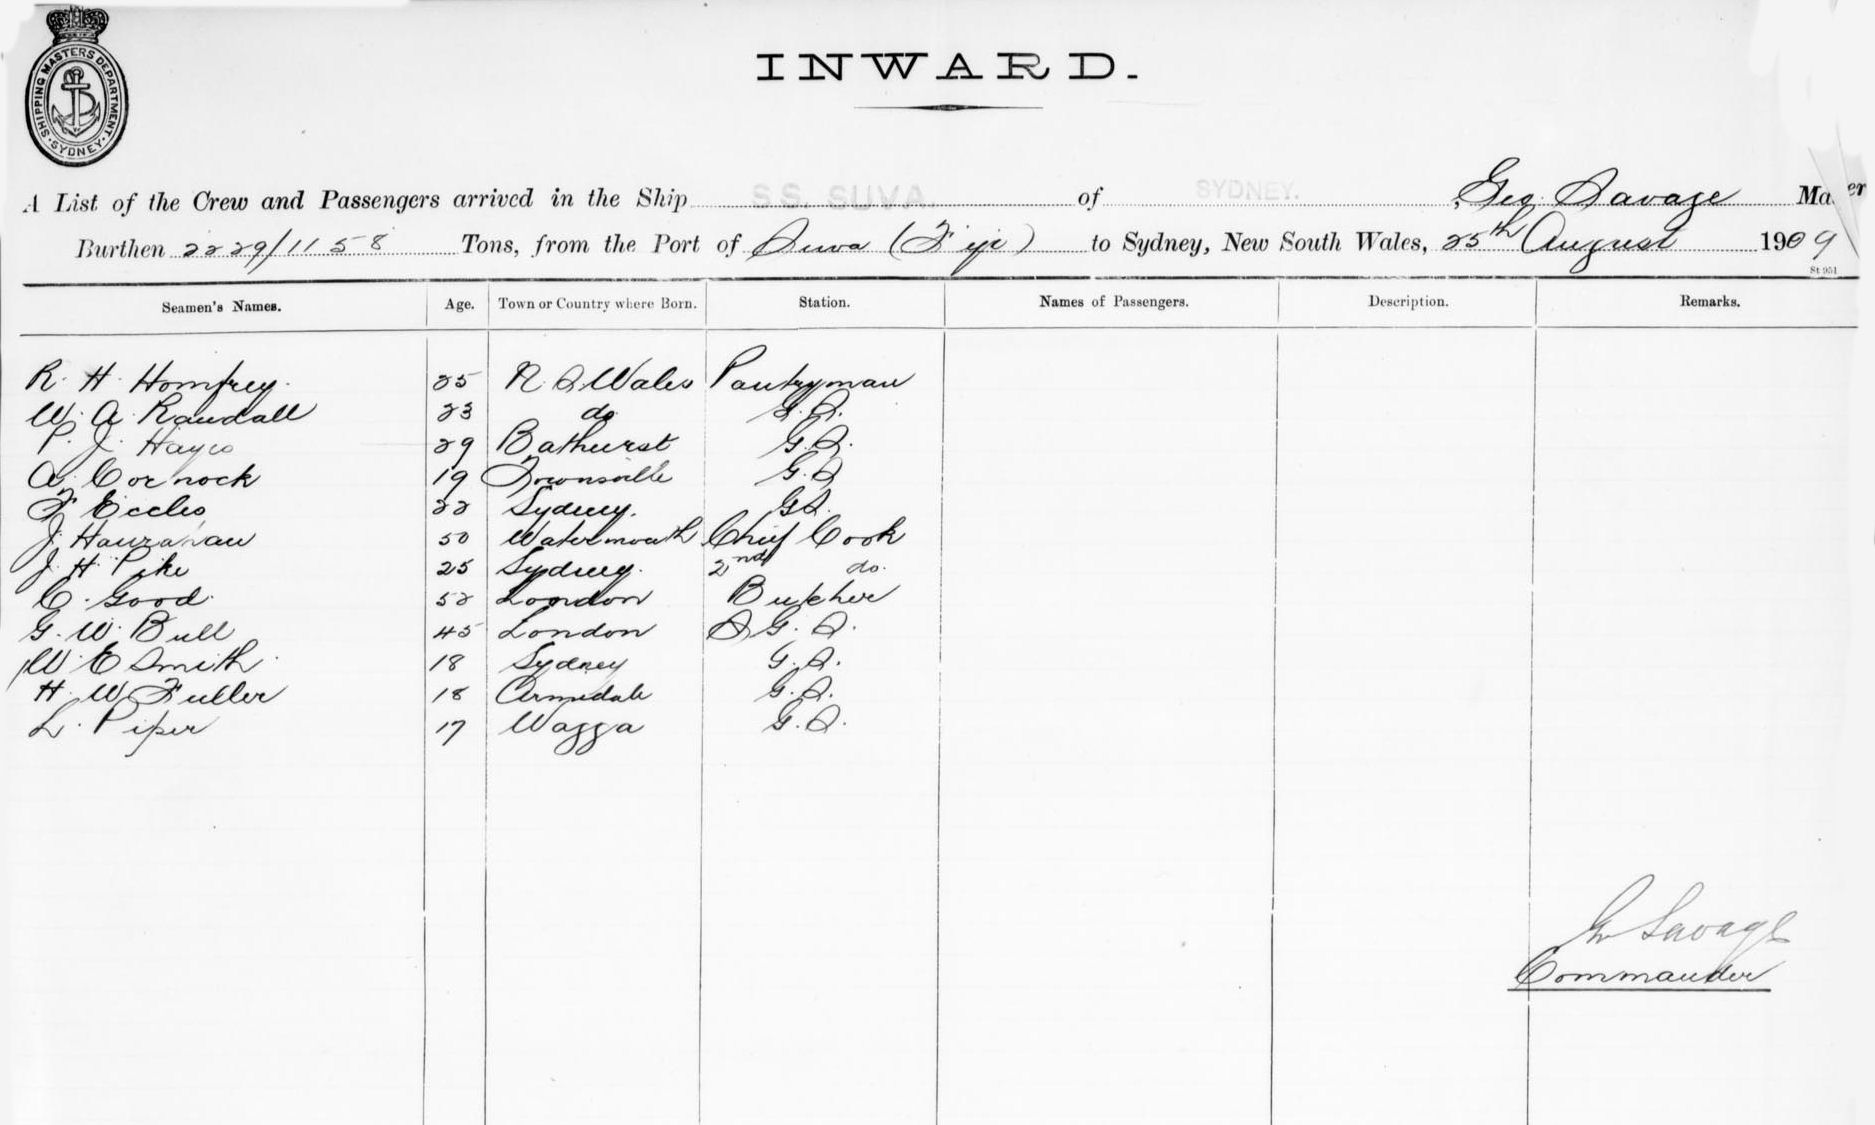 SHIPPING MASTERS DEPARTMENT
SYDNEY
INWARD.
A List of the Crew and Passengers arrived in the Ship S.S. SUVA. of SYDNEY. , Geo. Savage Master
Burthen 2229/1158 Tons, from the Port of Suva (Fiji) to Sydney, New South Wales, 25th August 1909
St 951
Seamen's Names. Age. Town or Country where Born. Station. Names of Passengers. Description. Remarks.
R. H. Homfrey. 25 N. S. Wales Pantryman
W. A. Randall 23 do G.S.
P. J. Hayes 29 Bathurst G.S.
A. Cornock 19 Townsville G.S
F Eccles 22 Sydney. GS.
J. Hanrahan 50 Watermouth Chief Cook
J. H. Pike 25 Sydney. 2nd do.
C. Good. 52 London Butcher
G. W. Bull 45 London S G. S.
W. E Smith. 18 Sydney G.S.
H. W Fuller 18 Armidale G.S.
L. Piper 17 Wagga G.S.
G Savage
Commander